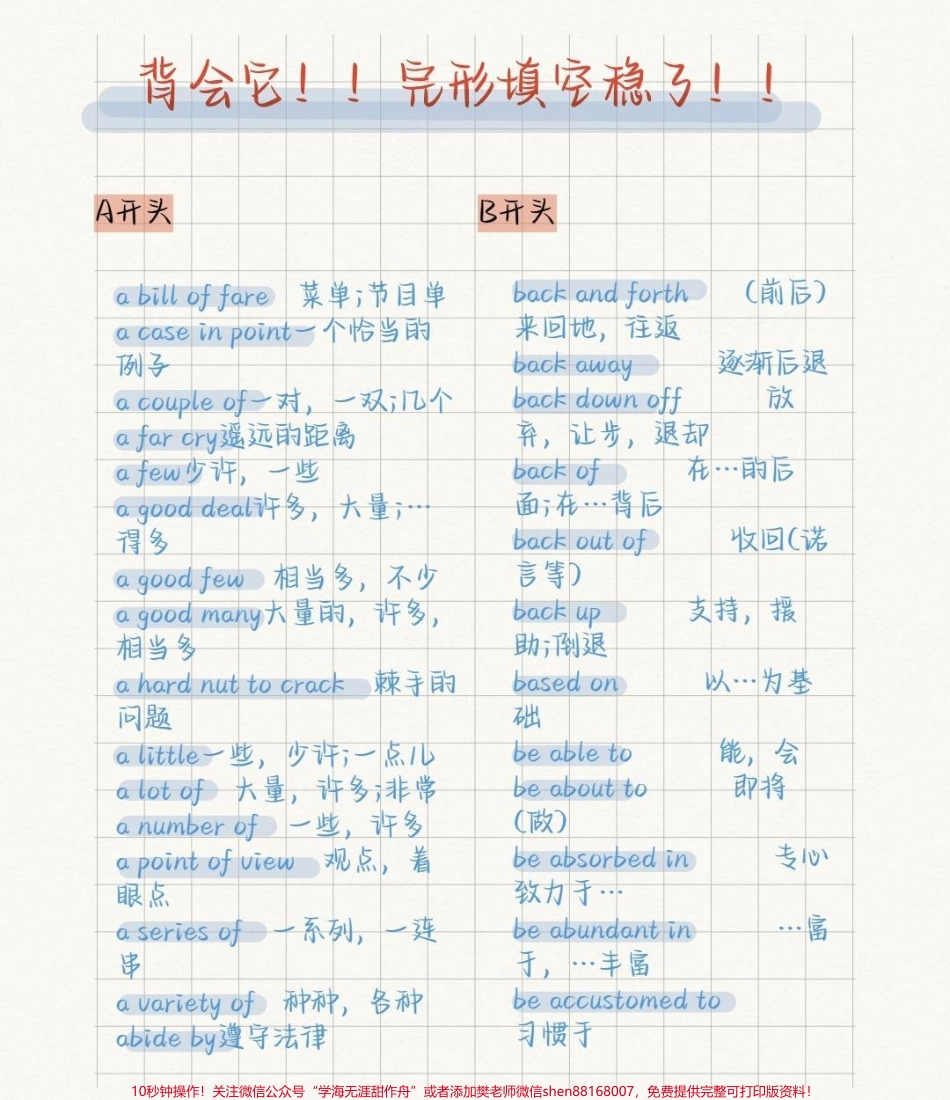 背会它！！完形填空稳了！！
A开头
a bill of fare 菜单;节目单
a case in point一个恰当的
例子
a couple of一对，一双;几个
a far cry遥远的距离
a few少许，一些
a good deal许多，大量;…
得多
a good few 相当多，不少
a good many大量的，许多，
相当多
a hard nut to crack 棘手的
问题
a little一些，少许;一点儿
a lot of 大量，许多;非常
a number of 一些，许多
a point of view 观点，着
眼点
a series of 一系列，一连
串
a variety of 种种，各种
abide by遵守法律
B开头
back and forth （前后）
来回地，往返
back away 逐渐后退
back down off 放
弃，让步，退却
back of 在…的后
面;在…背后
back out of 收回(诺
言等)
back up 支持，援
助;倒退
based on 以…为基
础
be able to 能，会
be about to 即将
(做)
be absorbed in 专心
致力于…
be abundant in …富
于，…丰富
be accustomed to
习惯于
10秒钟操作！关注微信公众号“学海无涯甜作舟”或者添加樊老师微信shen88168007，免费提供完整可打印版资料！